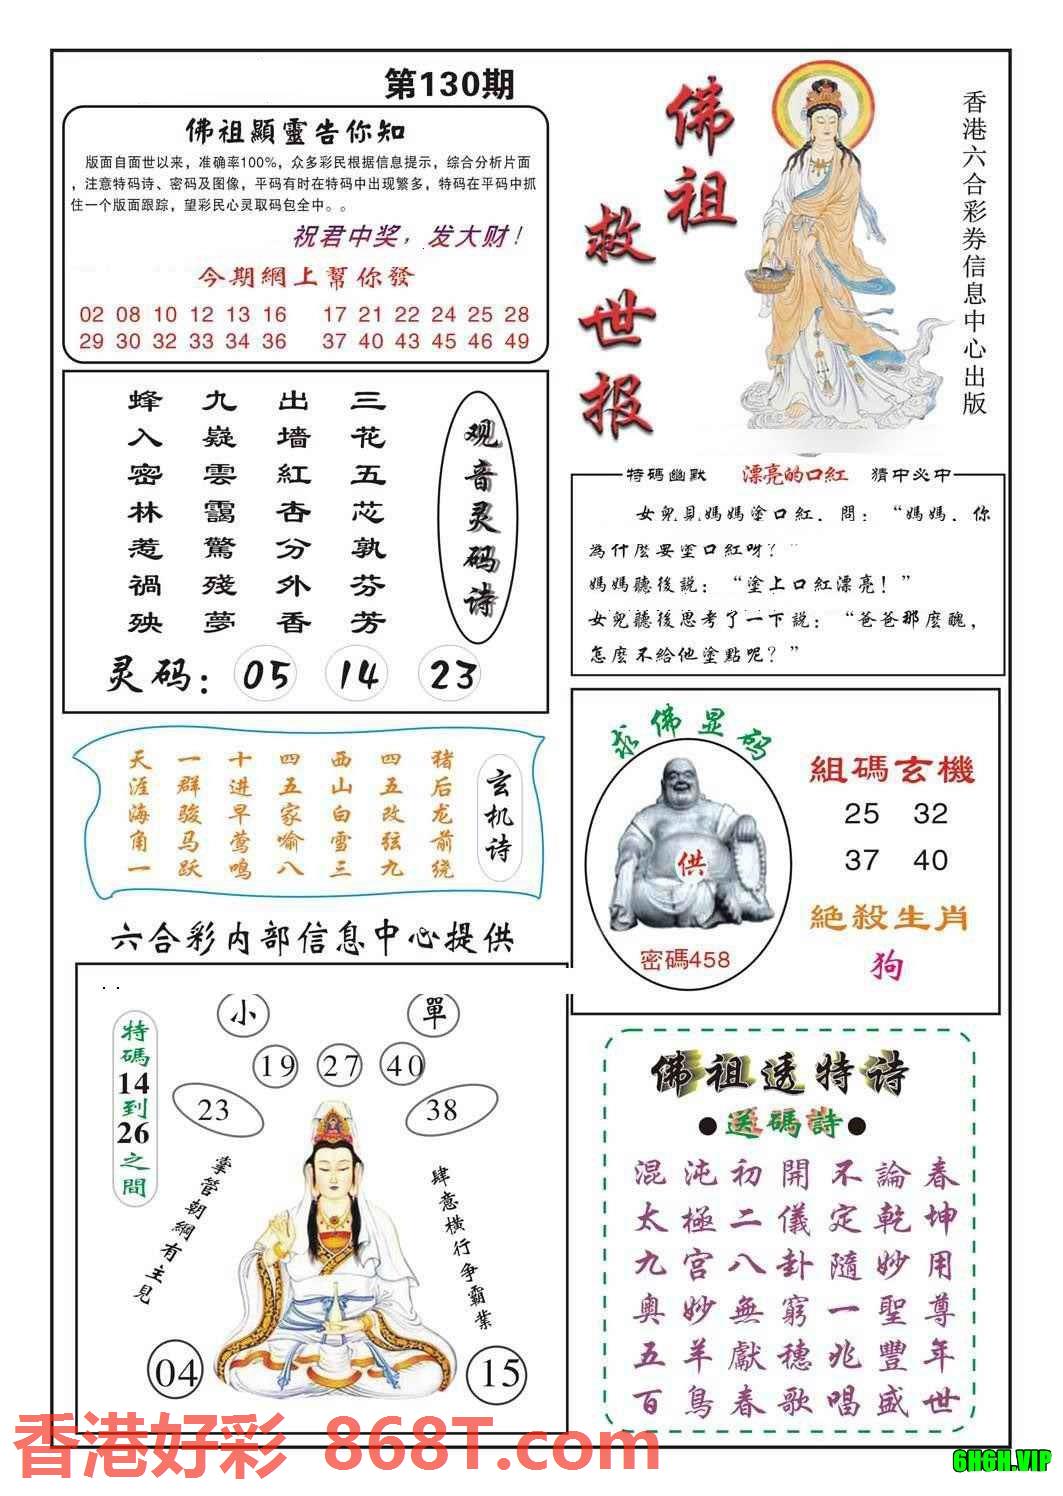 第130期
佛祖顯靈告你知
版面自面世以来，准确率100%，众多彩民根据信息提示，综合分析片面
，注意特码诗、密码及图像，平码有时在特码中出现繁多，特码在平码中抓
住一个版面跟踪，望彩民心灵取码包全中。。
祝君中奖，发大财！
今期網上幫你發
02 08 10 12 13 16 17 21 22 24 25 28
29 30 32 33 34 36 37 40 43 45 46 49
佛祖
救世报
香港六合彩券信息中心出版
观音灵码诗
三花五芯孰芬芳
出墙紅杏分外香
九嶷雲靄驚殘夢
蜂入密林惹禍殃
灵码：05 14 23
特碼幽默 漂亮的口紅 猜中必中
女兒見媽媽塗口紅．問：“媽媽．你
為什麼要塗口紅呀？”
媽媽聽後説：“塗上口紅漂亮！”
女兒聽後思考了一下説：“爸爸那麼醜，
怎麼不給他塗點呢？”
玄机诗
猪后龙前绕
四五改弦九
西山白雪三
四五家喻八
十进早莺鸣
一群骏马跃
天涯海角一
求佛显码
供
密碼458
組碼玄機
25 32
37 40
絕殺生肖
狗
六合彩内部信息中心提供
小 單
19 27 40
23 38
特碼14到26之間
掌管朝綱有主見
肆意橫行争霸業
04 15
佛祖透特诗
●送碼詩●
混沌初開不論春
太極二儀定乾坤
九宫八卦隨妙用
奥妙無窮一聖尊
五羊獻穗兆豐年
百鳥春歌唱盛世
香港好彩 868T.com
6H6H.VIP